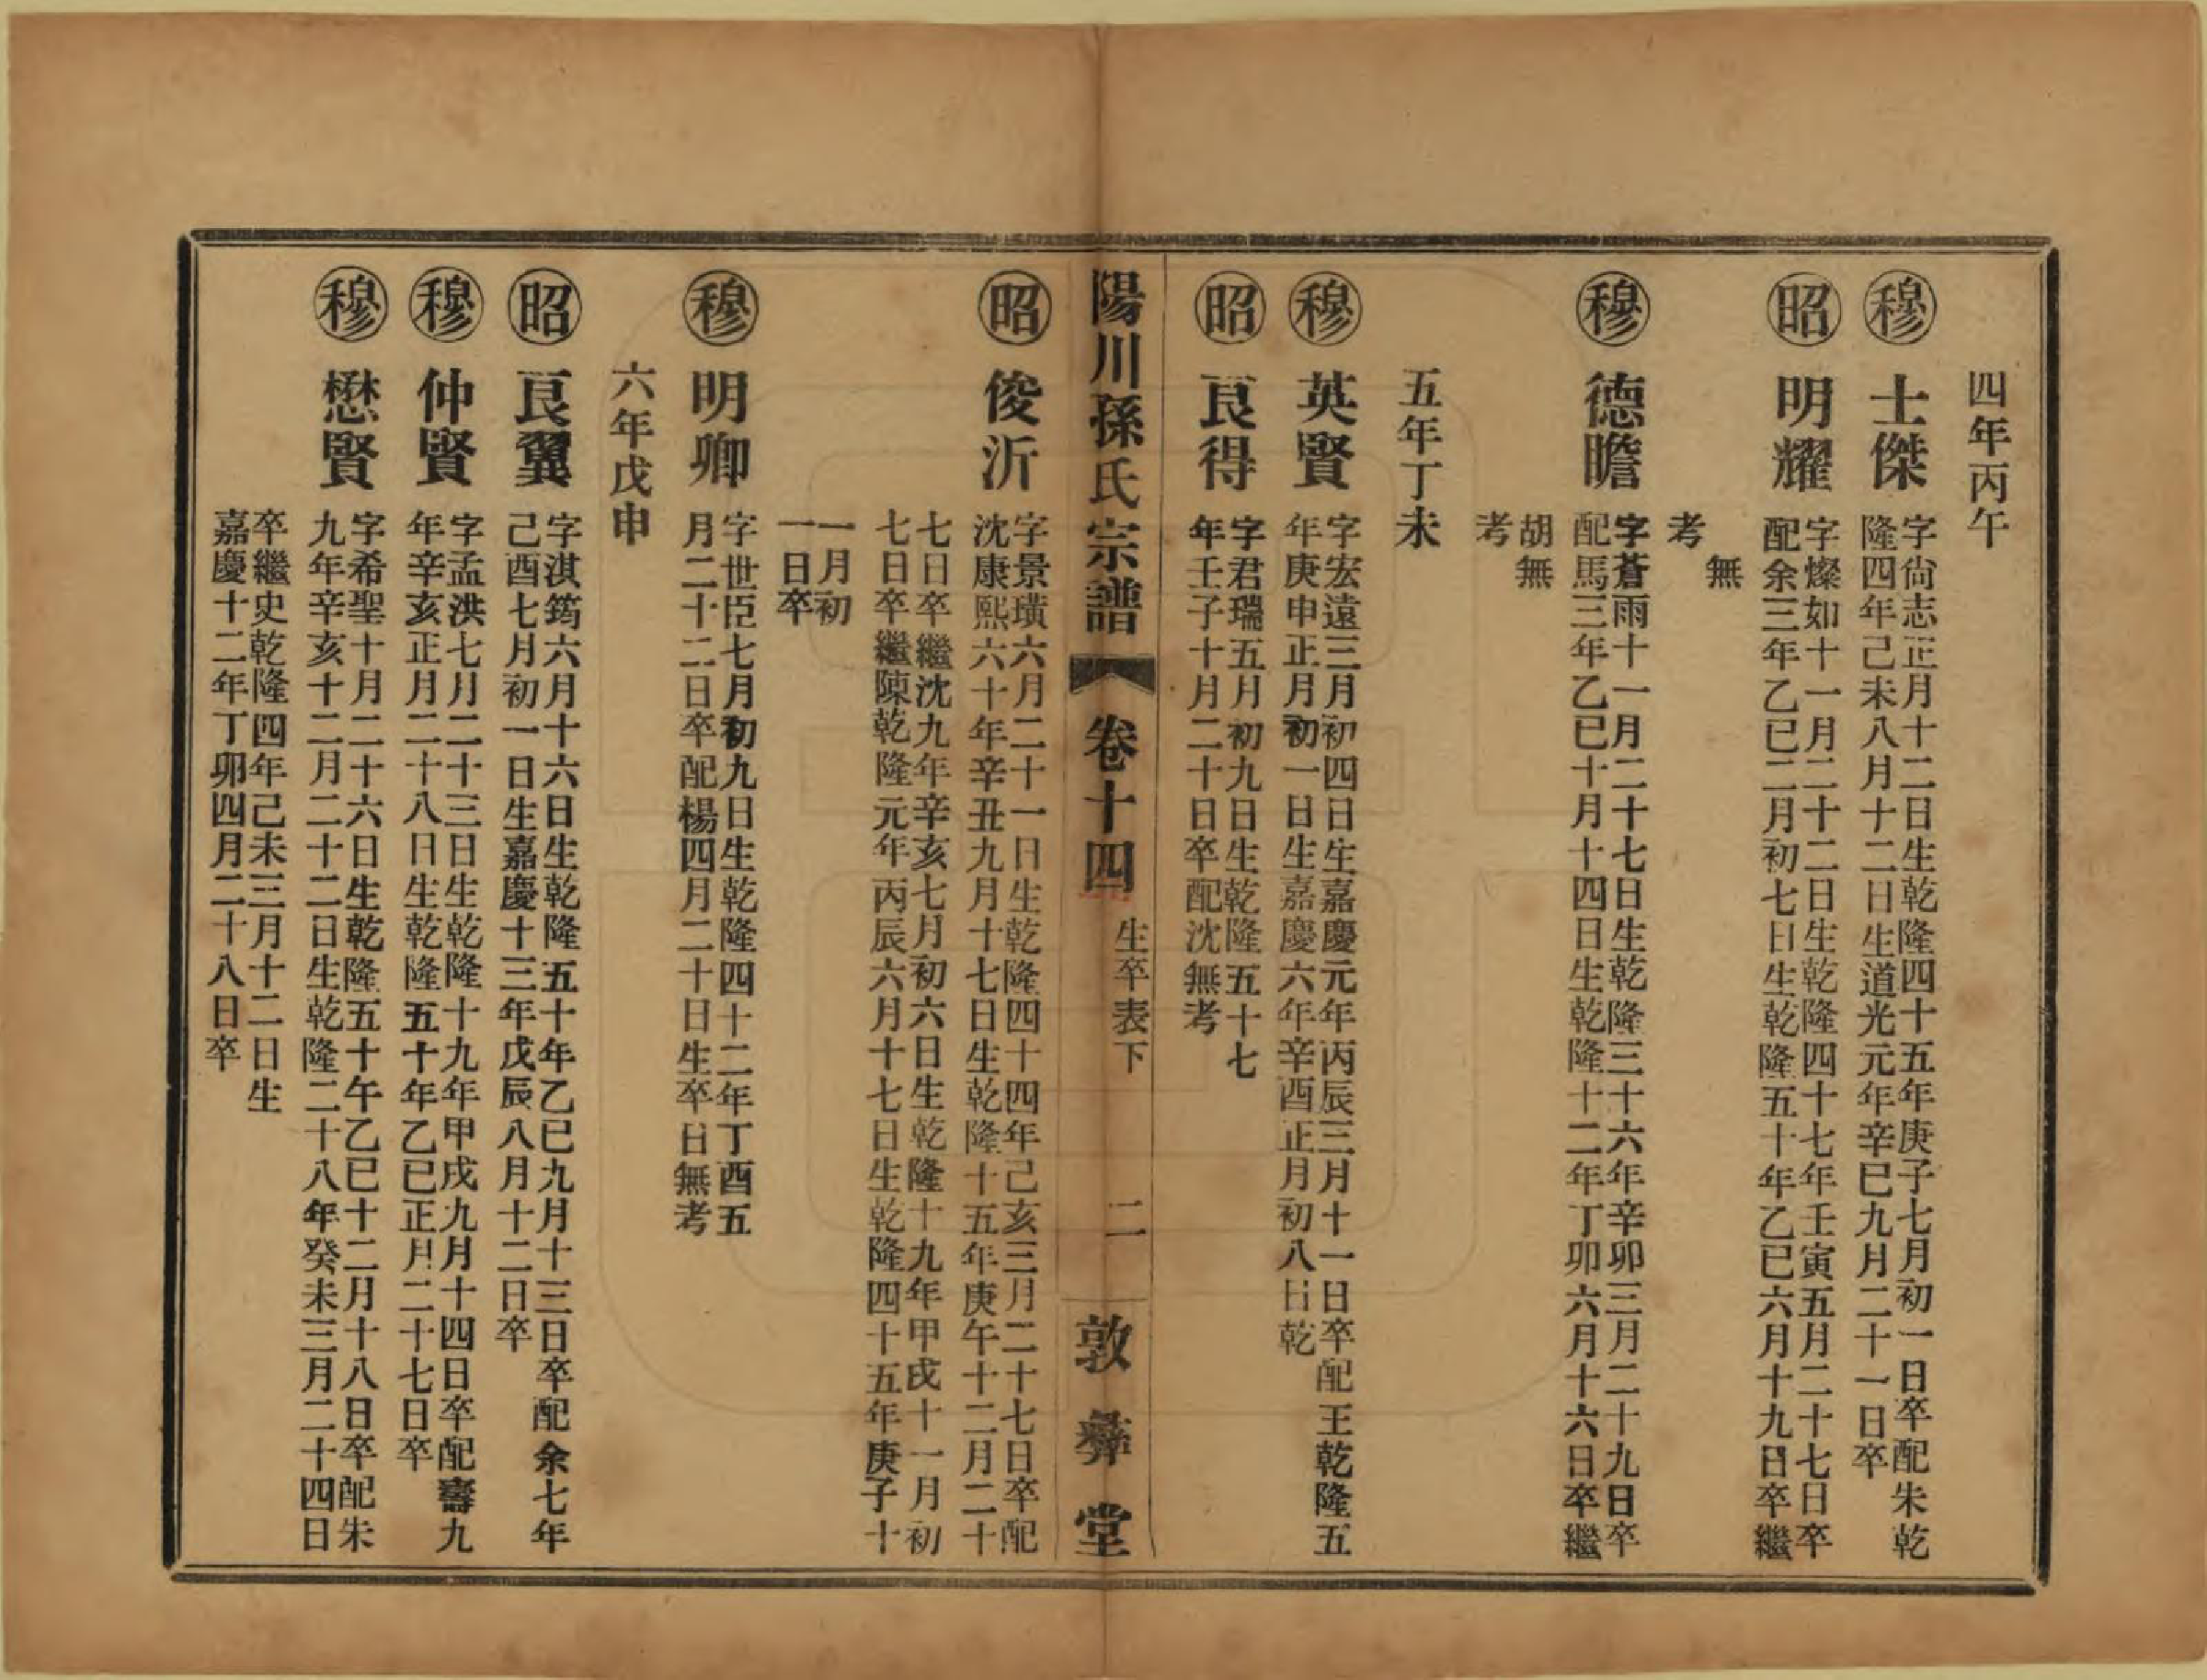 四年丙午
穆 士傑
字尙志正月十二日生乾隆四十五年庚子七月初一日卒配朱乾
隆四年己未八月十二日生道光元年辛巳九月二十一日卒
昭 明耀
字燦如十一月二十二日生乾隆四十七年壬寅五月二十七日卒
配余三年乙巳二月初七日生乾隆五十年乙巳六月十九日卒繼
無
考
穆 德瞻
字蒼雨十一月二十七日生乾隆三十六年辛卯三月二十九日卒
配馬三年乙巳十月十四日生乾隆十二年丁卯六月十六日卒繼
胡無
考
五年丁未
穆 英賢
字宏遠三月初四日生嘉慶元年丙辰三月十一日卒配王乾隆五
年庚申正月初一日生嘉慶六年辛酉正月初八日乾
昭 良得
字君瑞五月初九日生乾隆五十七
年壬子十月二十日卒配沈無考
陽川孫氏宗譜 卷十四 生卒表下 二 敦彝堂
昭 俊沂
字景璜六月二十一日生乾隆四十四年己亥三月二十七日卒配
沈康熙六十年辛丑九月十七日生乾隆十五年庚午十二月二十
七日卒繼沈九年辛亥七月初六日生乾隆十九年甲戌十一月初
七日卒繼陳乾隆元年丙辰六月十七日生乾隆四十五年庚子十
一月初
一日卒
穆 明卿
字世臣七月初九日生乾隆四十二年丁酉五
月二十二日卒配楊四月二十日生卒日無考
六年戊申
昭 良翼
字淇筠六月十六日生乾隆五十年乙巳九月十三日卒配余七年
己酉七月初一日生嘉慶十三年戊辰八月十二日卒
穆 仲賢
字孟洪七月二十三日生乾隆十九年甲戌九月十四日卒配壽九
年辛亥正月二十八日生乾隆五十年乙巳正月二十七日卒
穆 懋賢
字希聖十月二十六日生乾隆五十午乙巳十二月十八日卒配朱
九年辛亥十二月二十二日生乾隆二十八年癸未三月二十四日
卒繼史乾隆四年己未三月十二日生
嘉慶十二年丁卯四月二十八日卒